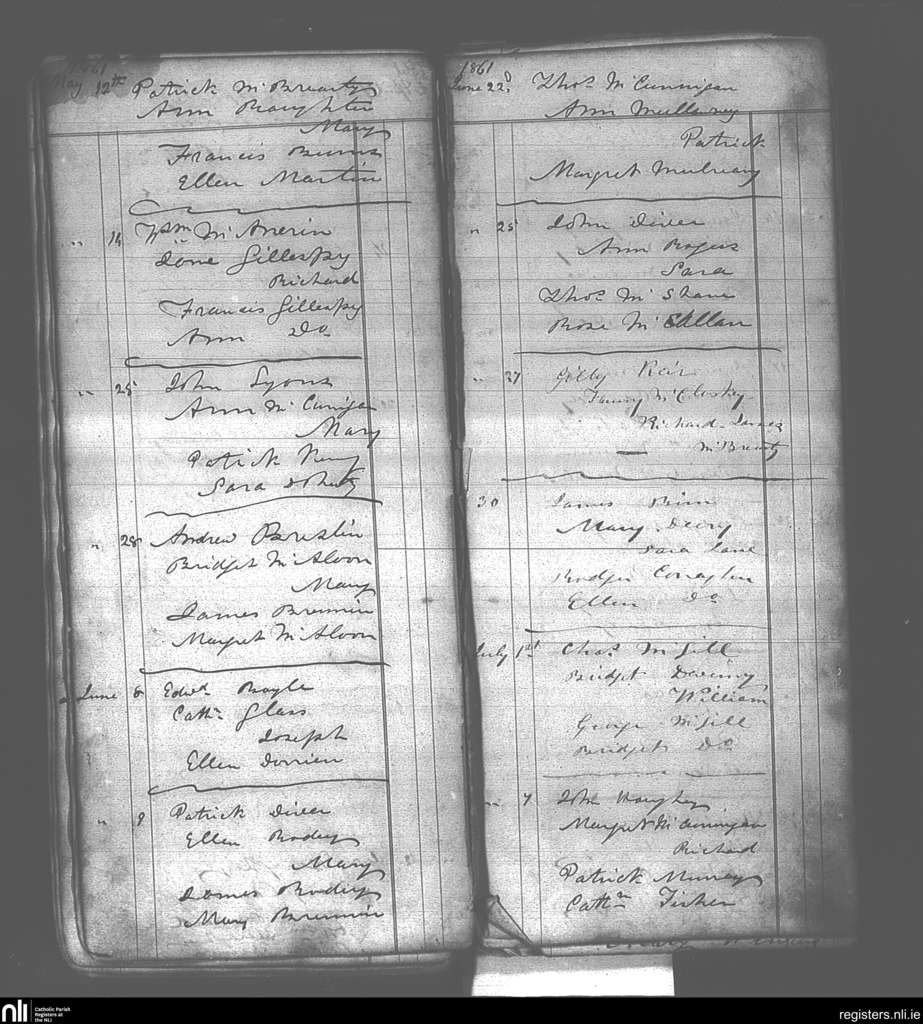 1861
May 12th Patrick McBrearty
Ann Raughter
Mary
Francis Burns
Ellen Martin
" 14 Wm McAnerin
Jane Gillespy
Richard
Francis Gillespy
Ann Do
" 25 John Lyons
Ann McCunigan
Mary
Patrick
Sara Doherty
" 28 Andrew Breslin
Bridget McAloon
Mary
James Brennin
Margret McAloon
June 8 Edwd Boyle
Cathn Glass
Joseph
Ellen Dorrien
" 9 Patrick Diver
Ellen Rodeys
Mary
James Rodeys
Mary Brennin
1861
June 22d Thos McCunnigan
Ann Mulloney
Patrick
Margret Mulreany
" 25 John Diver
Ann Rogers
Sara
Thos McShane
Rose McCallan
" 27 Gilby Keir
Fanny McClosky
Richard James
McBrearty
30 James
Mary Deery
Sara Jane
Rodger Conaghan
Ellen Do
July 1st Chas McGill
Bridget
William
George McGill
Bridget Do
" 7 John Haughey
Margret McCunnigan
Richard
Patrick Murray
Cathn Fisher
nli Catholic Parish
Registers at
the NLI
registers.nli.ie